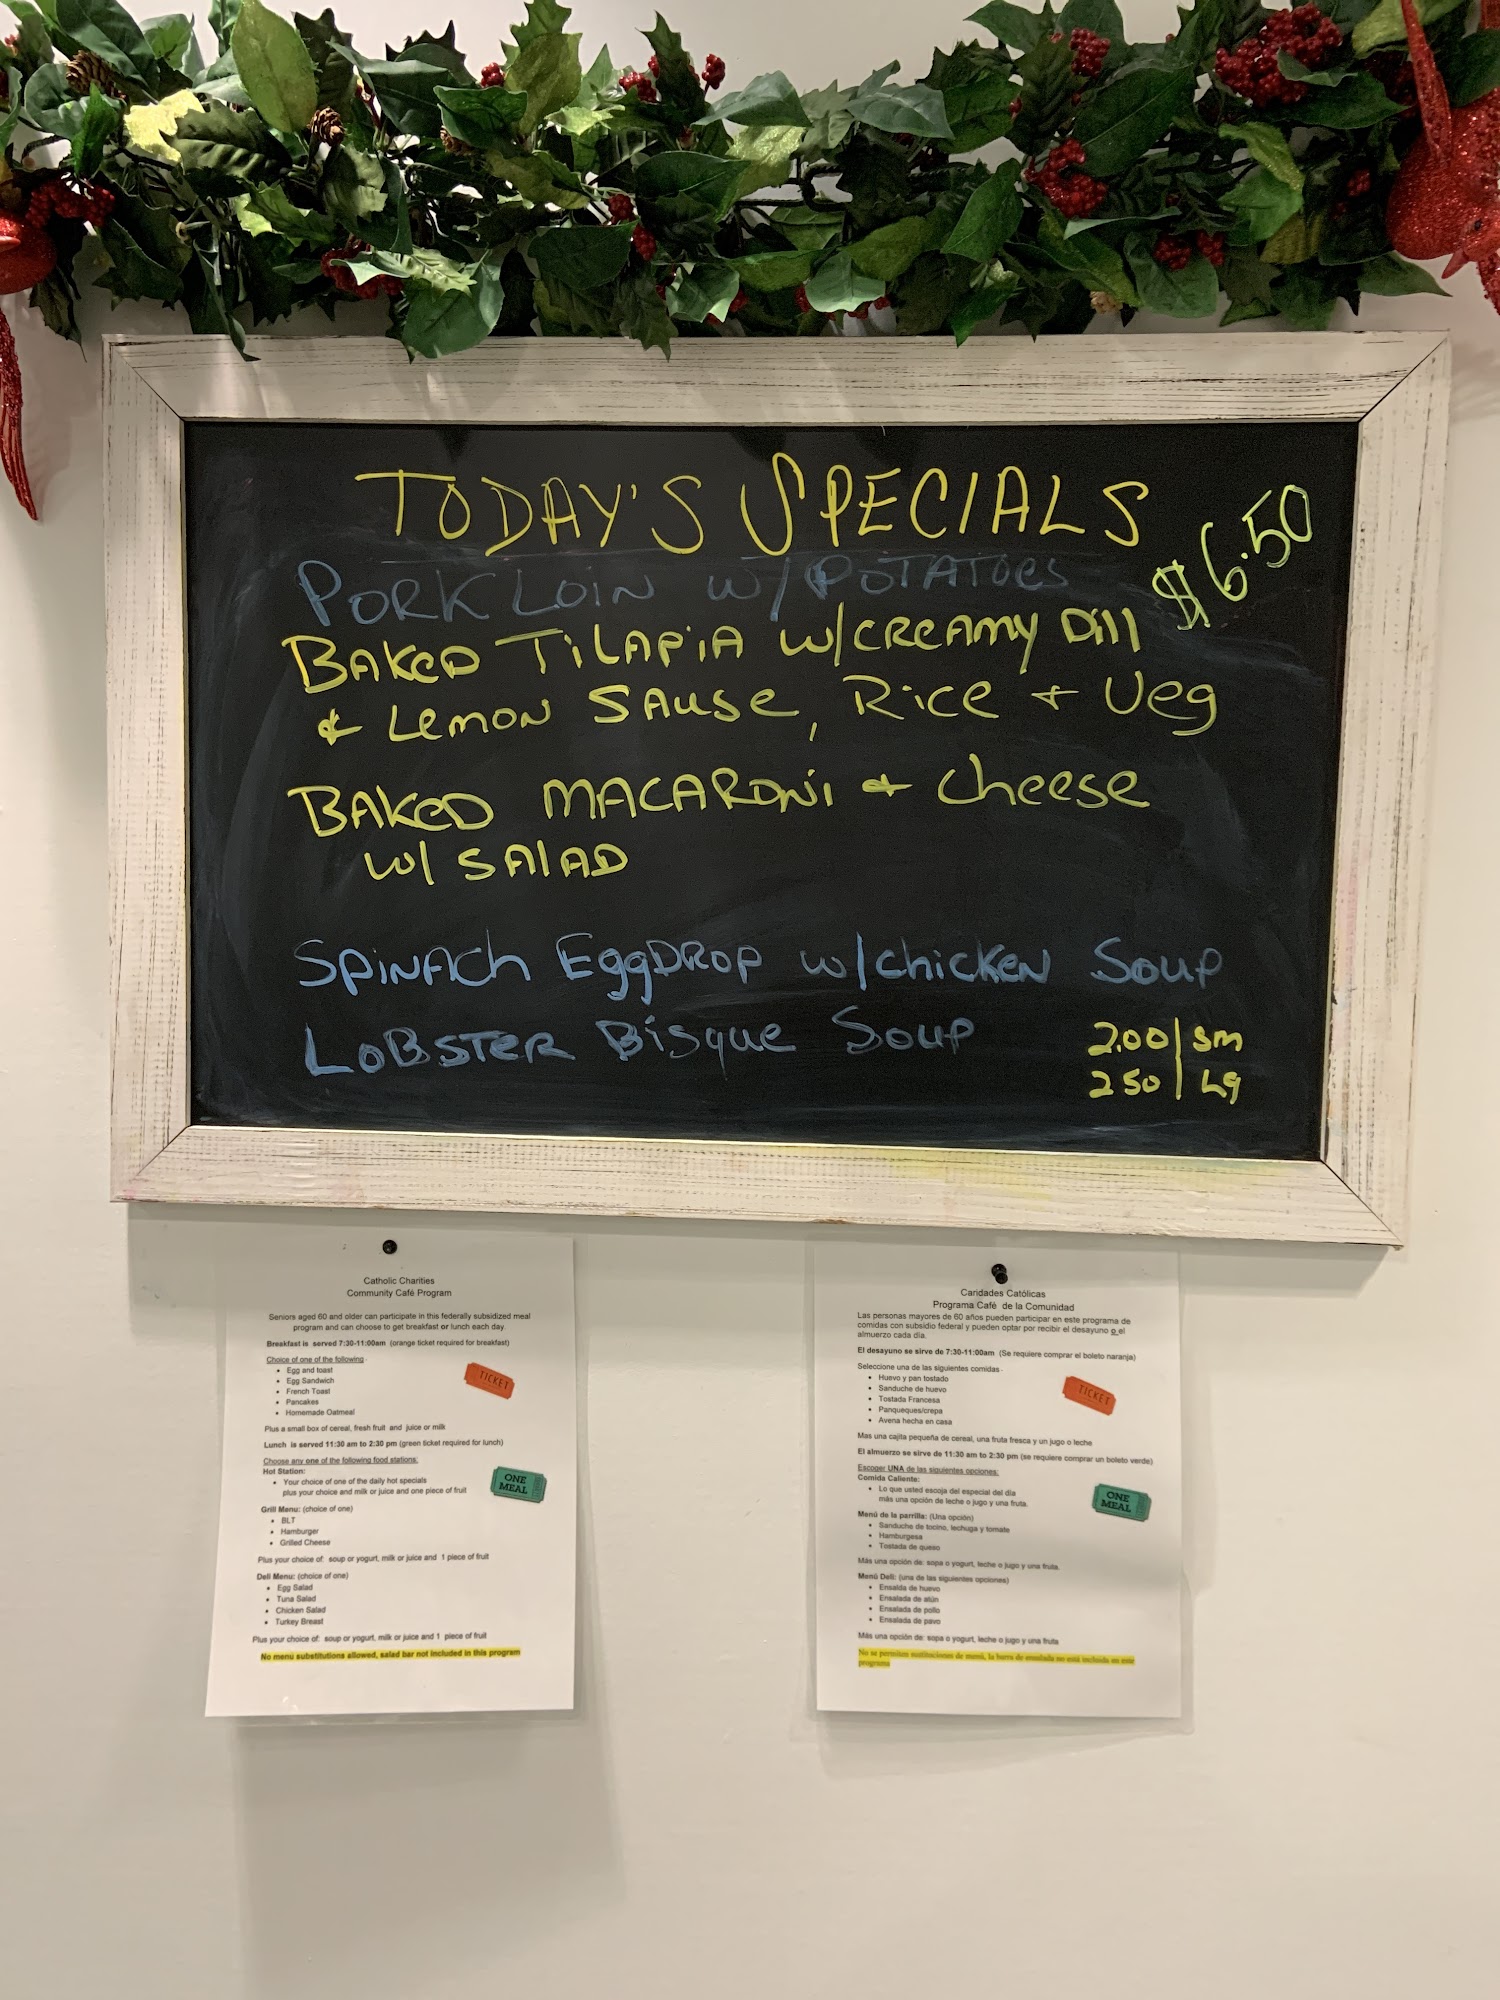 TODAY'S SPECIALS
$6.50
PORK LOIN W/POTATOES
BAKED TILAPIA W/CREAMY Dill
& Lemon SAUSE, Rice + Veg
BAKED MACARONI & Cheese
W/ SAlAD
SPINACH EggDROP w/chicken Soup
LOBSTER Bisque Soup
2.00 | Sm
250 | Lg
Catholic Charities
Community Café Program
Seniors aged 60 and older can participate in this federally subsidized meal
program and can choose to get breakfast or lunch each day.
Breakfast is served 7:30-11:00am (orange ticket required for breakfast)
Choice of one of the following-
• Egg and toast
• Egg Sandwich
• French Toast
• Pancakes
• Homemade Oatmeal
TICKET
Plus a small box of cereal, fresh fruit and juice or milk
Lunch is served 11:30 am to 2:30 pm (green ticket required for lunch)
Choose any one of the following food stations:
Hot Station:
• Your choice of one of the daily hot specials
plus your choice and milk or juice and one piece of fruit
ONE
MEAL
Grill Menu: (choice of one)
• BLT
• Hamburger
• Grilled Cheese
Plus your choice of: soup or yogurt, milk or juice and 1 piece of fruit
Deli Menu: (choice of one)
• Egg Salad
• Tuna Salad
• Chicken Salad
• Turkey Breast
Plus your choice of: soup or yogurt, milk or juice and 1 piece of fruit
No menu substitutions allowed, salad bar not included in this program
Caridades Católicas
Programa Café de la Comunidad
Las personas mayores de 60 años pueden participar en este programa de
comidas con subsidio federal y pueden optar por recibir el desayuno o el
almuerzo cada día.
El desayuno se sirve de 7:30-11:00am (Se requiere comprar el boleto naranja)
Seleccione una de las siguientes comidas-
• Huevo y pan tostado
• Sanduche de huevo
• Tostada Francesa
• Panqueques/crepa
• Avena hecha en casa
TICKET
Mas una cajita pequeña de cereal, una fruta fresca y un jugo o leche
El almuerzo se sirve de 11:30 am to 2:30 pm (se requiere comprar un boleto verde)
Escoger UNA de las siguientes opciones:
Comida Caliente:
• Lo que usted escoja del especial del día
más una opción de leche o jugo y una fruta.
ONE
MEAL
Menú de la parrilla: (Una opción)
• Sanduche de tocino, lechuga y tomate
• Hamburgesa
• Tostada de queso
Más una opción de: sopa o yogurt, leche o jugo y una fruta.
Menú Deli: (una de las siguientes opciones)
• Ensalda de huevo
• Ensalada de atún
• Ensalada de pollo
• Ensalada de pavo
Más una opción de: sopa o yogurt, leche o jugo y una fruta
No se permiten sustituciones de menú, la barra de ensalada no está incluida en este
programa